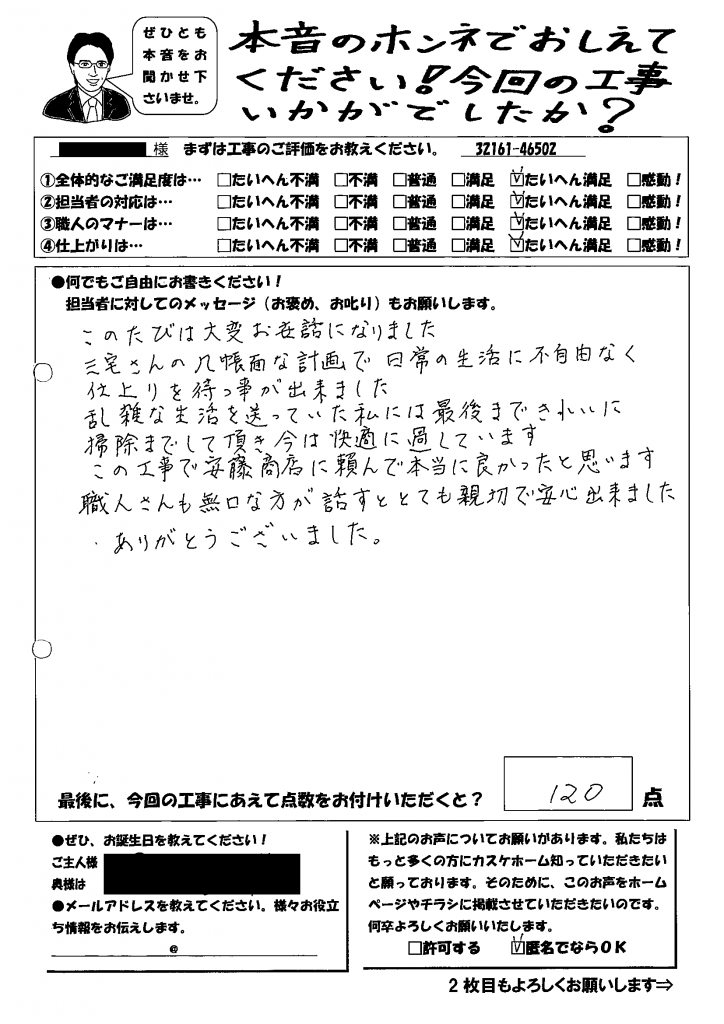 ぜひとも
本音をお
聞かせ下
さいませ。
本音のホンネでおしえて
ください!今回の工事
いかがでしたか?
様 まずは工事のご評価をお教えください。 32161-46502
①全体的なご満足度は… □たいへん不満 □不満 □普通 □満足 ☑たいへん満足 □感動!
②担当者の対応は… □たいへん不満 □不満 □普通 □満足 ☑たいへん満足 □感動!
③職人のマナーは… □たいへん不満 □不満 □普通 □満足 ☑たいへん満足 □感動!
④仕上がりは… □たいへん不満 □不満 □普通 □満足 ☑たいへん満足 □感動!
●何でもご自由にお書きください!
担当者に対してのメッセージ(お褒め、お叱り)もお願いします。
このたびは大変お世話になりました
三宅さんの几帳面な計画で日常の生活に不自由なく
仕上りを待つ事が出来ました
乱雑な生活を送っていた私には最後まできれいに
掃除までして頂き今は快適に過しています
この工事で安藤商店に頼んで本当に良かったと思います
職人さんも無口な方が話すととても親切で安心出来ました
ありがとうございました。
最後に、今回の工事にあえて点数をお付けいただくと? 120 点
●ぜひ、お誕生日を教えてください!
ご主人様
奥様は
●メールアドレスを教えてください。様々お役立
ち情報をお伝えします。
@
※上記のお声についてお願いがあります。私たちは
もっと多くの方にカスケホーム知っていただきたい
と願っております。そのために、このお声をホーム
ページやチラシに掲載させていただきたいのです。
何卒よろしくお願いいたします。
□許可する ☑匿名でならOK
2枚目もよろしくお願いします⇒